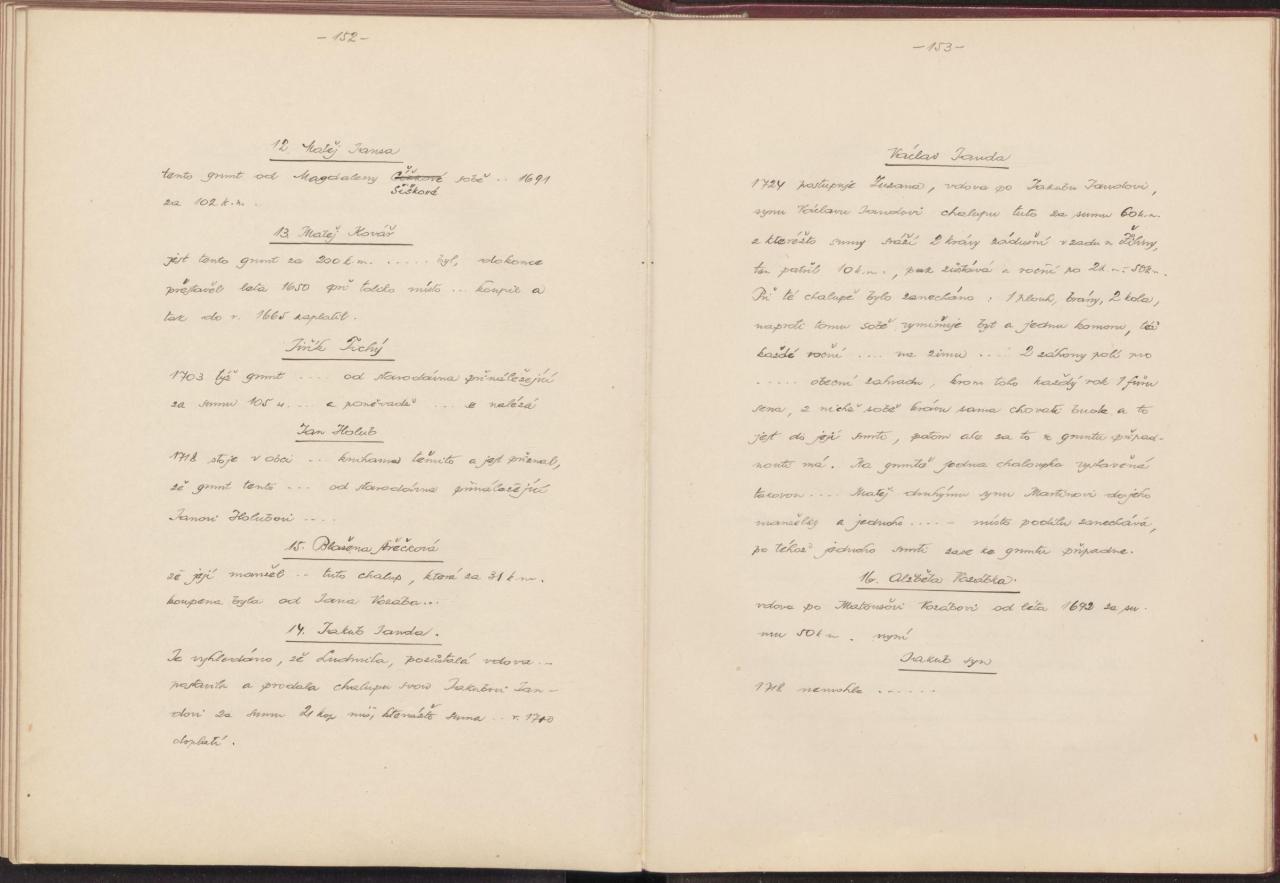 - 152 -
12. Matěj Jansa
tento grunt od Magdaleny Šiškové sobě .. 1691
za 102 k. m.
13. Matěj Kovář
jest tento grunt za 200 k. m. ..... byl, dokonce
přistavěl leta 1650 při toliko místo ... koupil a
tak do r. 1665 zaplatil.
Jiřík Tichý
1703 týž grunt .... od starodávna přináležející
za summu 105 .... a poněvadž .... se nalézá
Jan Holub
1718 stoje v obci ... knihama těmito a jest přiznal,
že grunt tento .... od starodávna přináležející
Janovi Holubovi ....
15. Blažena
že její manžel .. tuto chalup, která za 31 k m.
koupena byla od Jana Kozába...
14. Jakub Janda.
Je vyhledáno, že Ludmila, pozůstalá vdova ...
postavila a prodala chalupu svou Jakubovi Jan-
dovi za summu 21 kop míš, kterážto suma .. r. 1710
doplatí.
- 153 -
Václav Janda
1724 postupuje Zuzana, vdova po Jakubu Jandovi,
synu Václavu Jandovi chalupu tuto za sumu 60 k. m.
z kteréžto sumy sráží 2 krávy zádušní vzadu
ten patřil 10 k. m., pak zůstává a roční po 2 k. m. = 50 k m.
Při té chalupě bylo zanecháno : 1 plouh, brány, 2 kola,
naproti tomu sobě vymiňuje byt a jednu komoru, též
každé roční .... na zimu .... 2 záhony polí pro
..... obecní zahradu, krom toho každý rok 1 fůru
sena, z nichž sobě krávu sama chovati bude a to
jest do její smrti, potom ale za to k gruntu připad-
nouti má. Na gruntě jedna chaloupka vystavěná
takovou .... Matěj druhýmu synu Martinovi do jeho
manželky a jednoho ..... místo podílu zanechává,
po téhož jednoho smrti zase ke gruntu připadne.
16. Alžběta Kozábka.
vdova po Matoušovi Kozábovi od léta 1692 za su-
mu 50 k m. nyní
Jakub syn
1718 nemohla ......